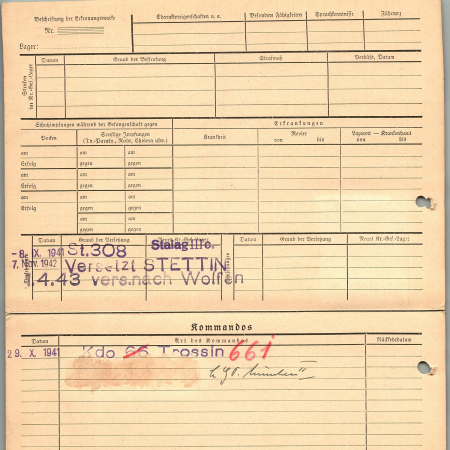 Beschriftung der Erkennungsmarke
Nr.
Lager:
Charaktereigenschaften u. a.
Besondere Fähigkeiten
Sprachkenntnisse
Führung
Strafen im Kr.-Gef.-Lager
Datum
Grund der Bestrafung
Strafmaß
Verbüßt, Datum
Schutzimpfungen während der Gefangenschaft gegen
Erkrankungen
Pocken
Sonstige Impfungen
(Ty.-Paratyp., Ruhr, Cholera usw.)
Krankheit
Revier
von bis
Lazarett — Krankenhaus
von bis
am am
Erfolg gegen gegen
am am
Erfolg gegen gegen
am am
Erfolg gegen gegen
am am
gegen gegen
Datum
Grund der Versetzung
Neues Kr.-Gef.-Lager
Datum
Grund der Versetzung
Neues Kr.-Gef.-Lager
-8. X. 1941 St.308 Stalag
7. Nov. 1942 Versetzt STETTIN
1.4.43 vers.nach Wolfen
Kommandos
Datum
Art des Kommandos
Rückkehrdatum
29. X. 1941 Kdo 66 Trossin 661